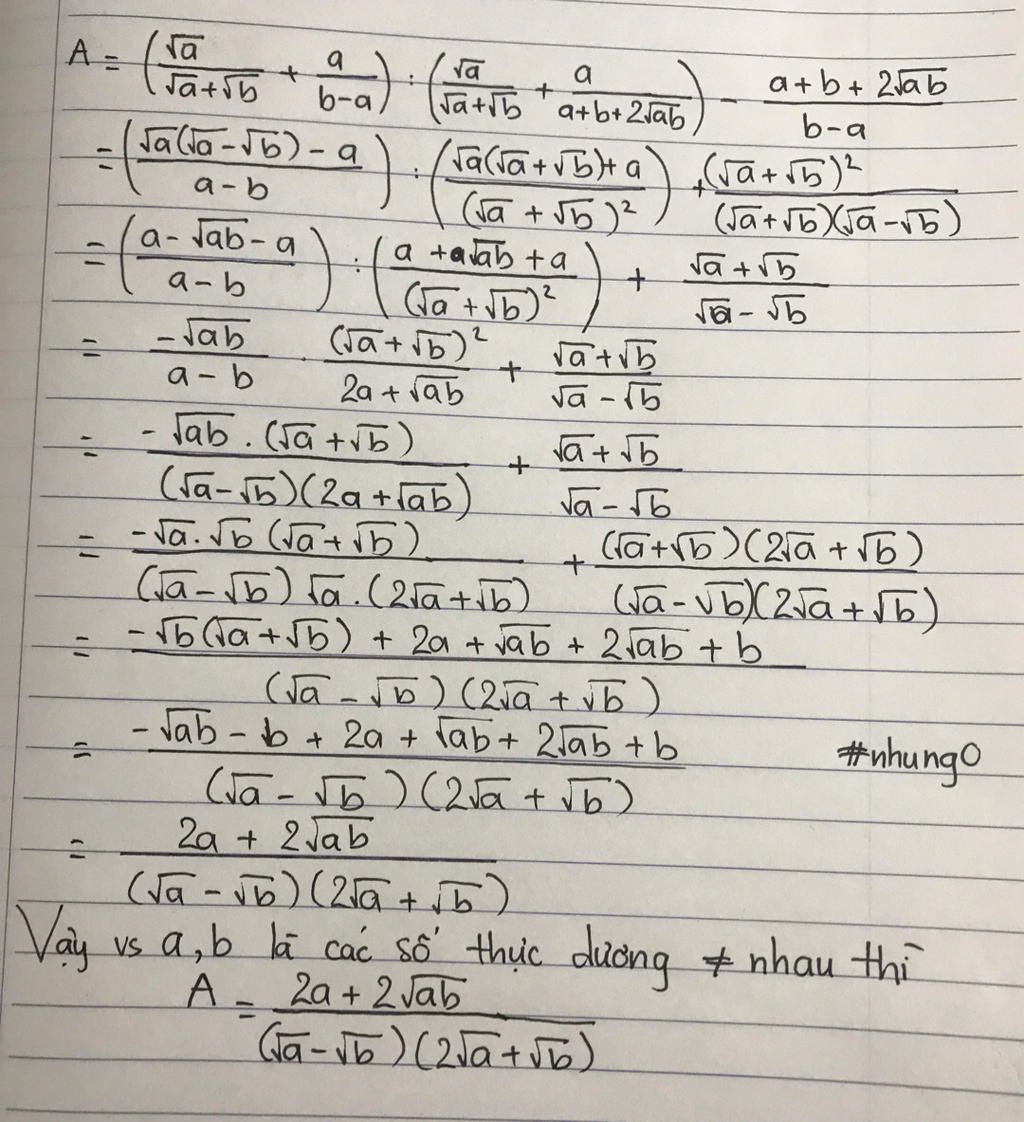 A = (√a/(√a+√b) + a/(b-a)) : (√a/(√a+√b) + a/(a+b+2√ab)) - (a+b+2√ab)/(b-a)
= ((√a(√a-√b)-a)/(a-b)) : ((√a(√a+√b)+a)/(√a+√b)²) + (√a+√b)²/((√a+√b)(√a-√b))
= ((a-√ab-a)/(a-b)) : ((a+a√ab+a)/(√a+√b)²) + (√a+√b)/(√a-√b)
= -√ab/(a-b) . (√a+√b)²/(2a+√ab) + (√a+√b)/(√a-√b)
= -√ab.(√a+√b)/((√a-√b)(2a+√ab)) + (√a+√b)/(√a-√b)
= -√a.√b(√a+√b)/((√a-√b)√a.(2√a+√b)) + (√a+√b)(2√a+√b)/((√a-√b)(2√a+√b))
= (-√b(√a+√b)+2a+√ab+2√ab+b)/((√a-√b)(2√a+√b))
= (-√ab-b+2a+√ab+2√ab+b)/((√a-√b)(2√a+√b)) #nhung0
= (2a+2√ab)/((√a-√b)(2√a+√b))
Vậy vs a,b là các số thực dương ≠ nhau thì
A = (2a+2√ab)/((√a-√b)(2√a+√b))